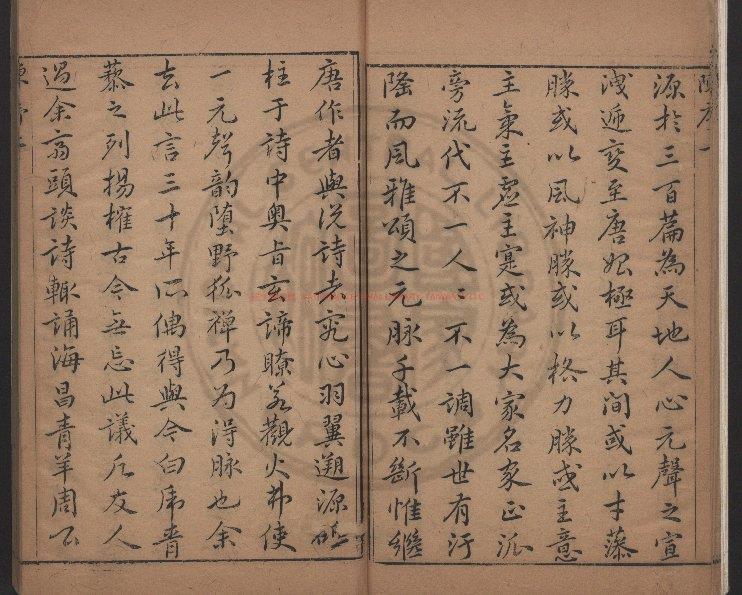 源於三百篇為天地人心元聲之宣
洩遞變至唐始極耳其間或以才藻
勝或以風神勝或以格力勝或主意
主氣主虛主寔或為大家名家正派
旁流代不一人人不一調雖世有汙
隆而風雅頌之元脉千載不斷惟繼
唐作者與說詩者究心羽翼遡源砥
柱于詩中奧旨玄諦瞭若觀火弗使
一元聲韵墮野狐禪乃为得脉也余
去此言三十年所偶得與今白席青
藜之列揚榷古今無忘此議凡友人
過余斎頭談詩輒誦海昌青羊周公